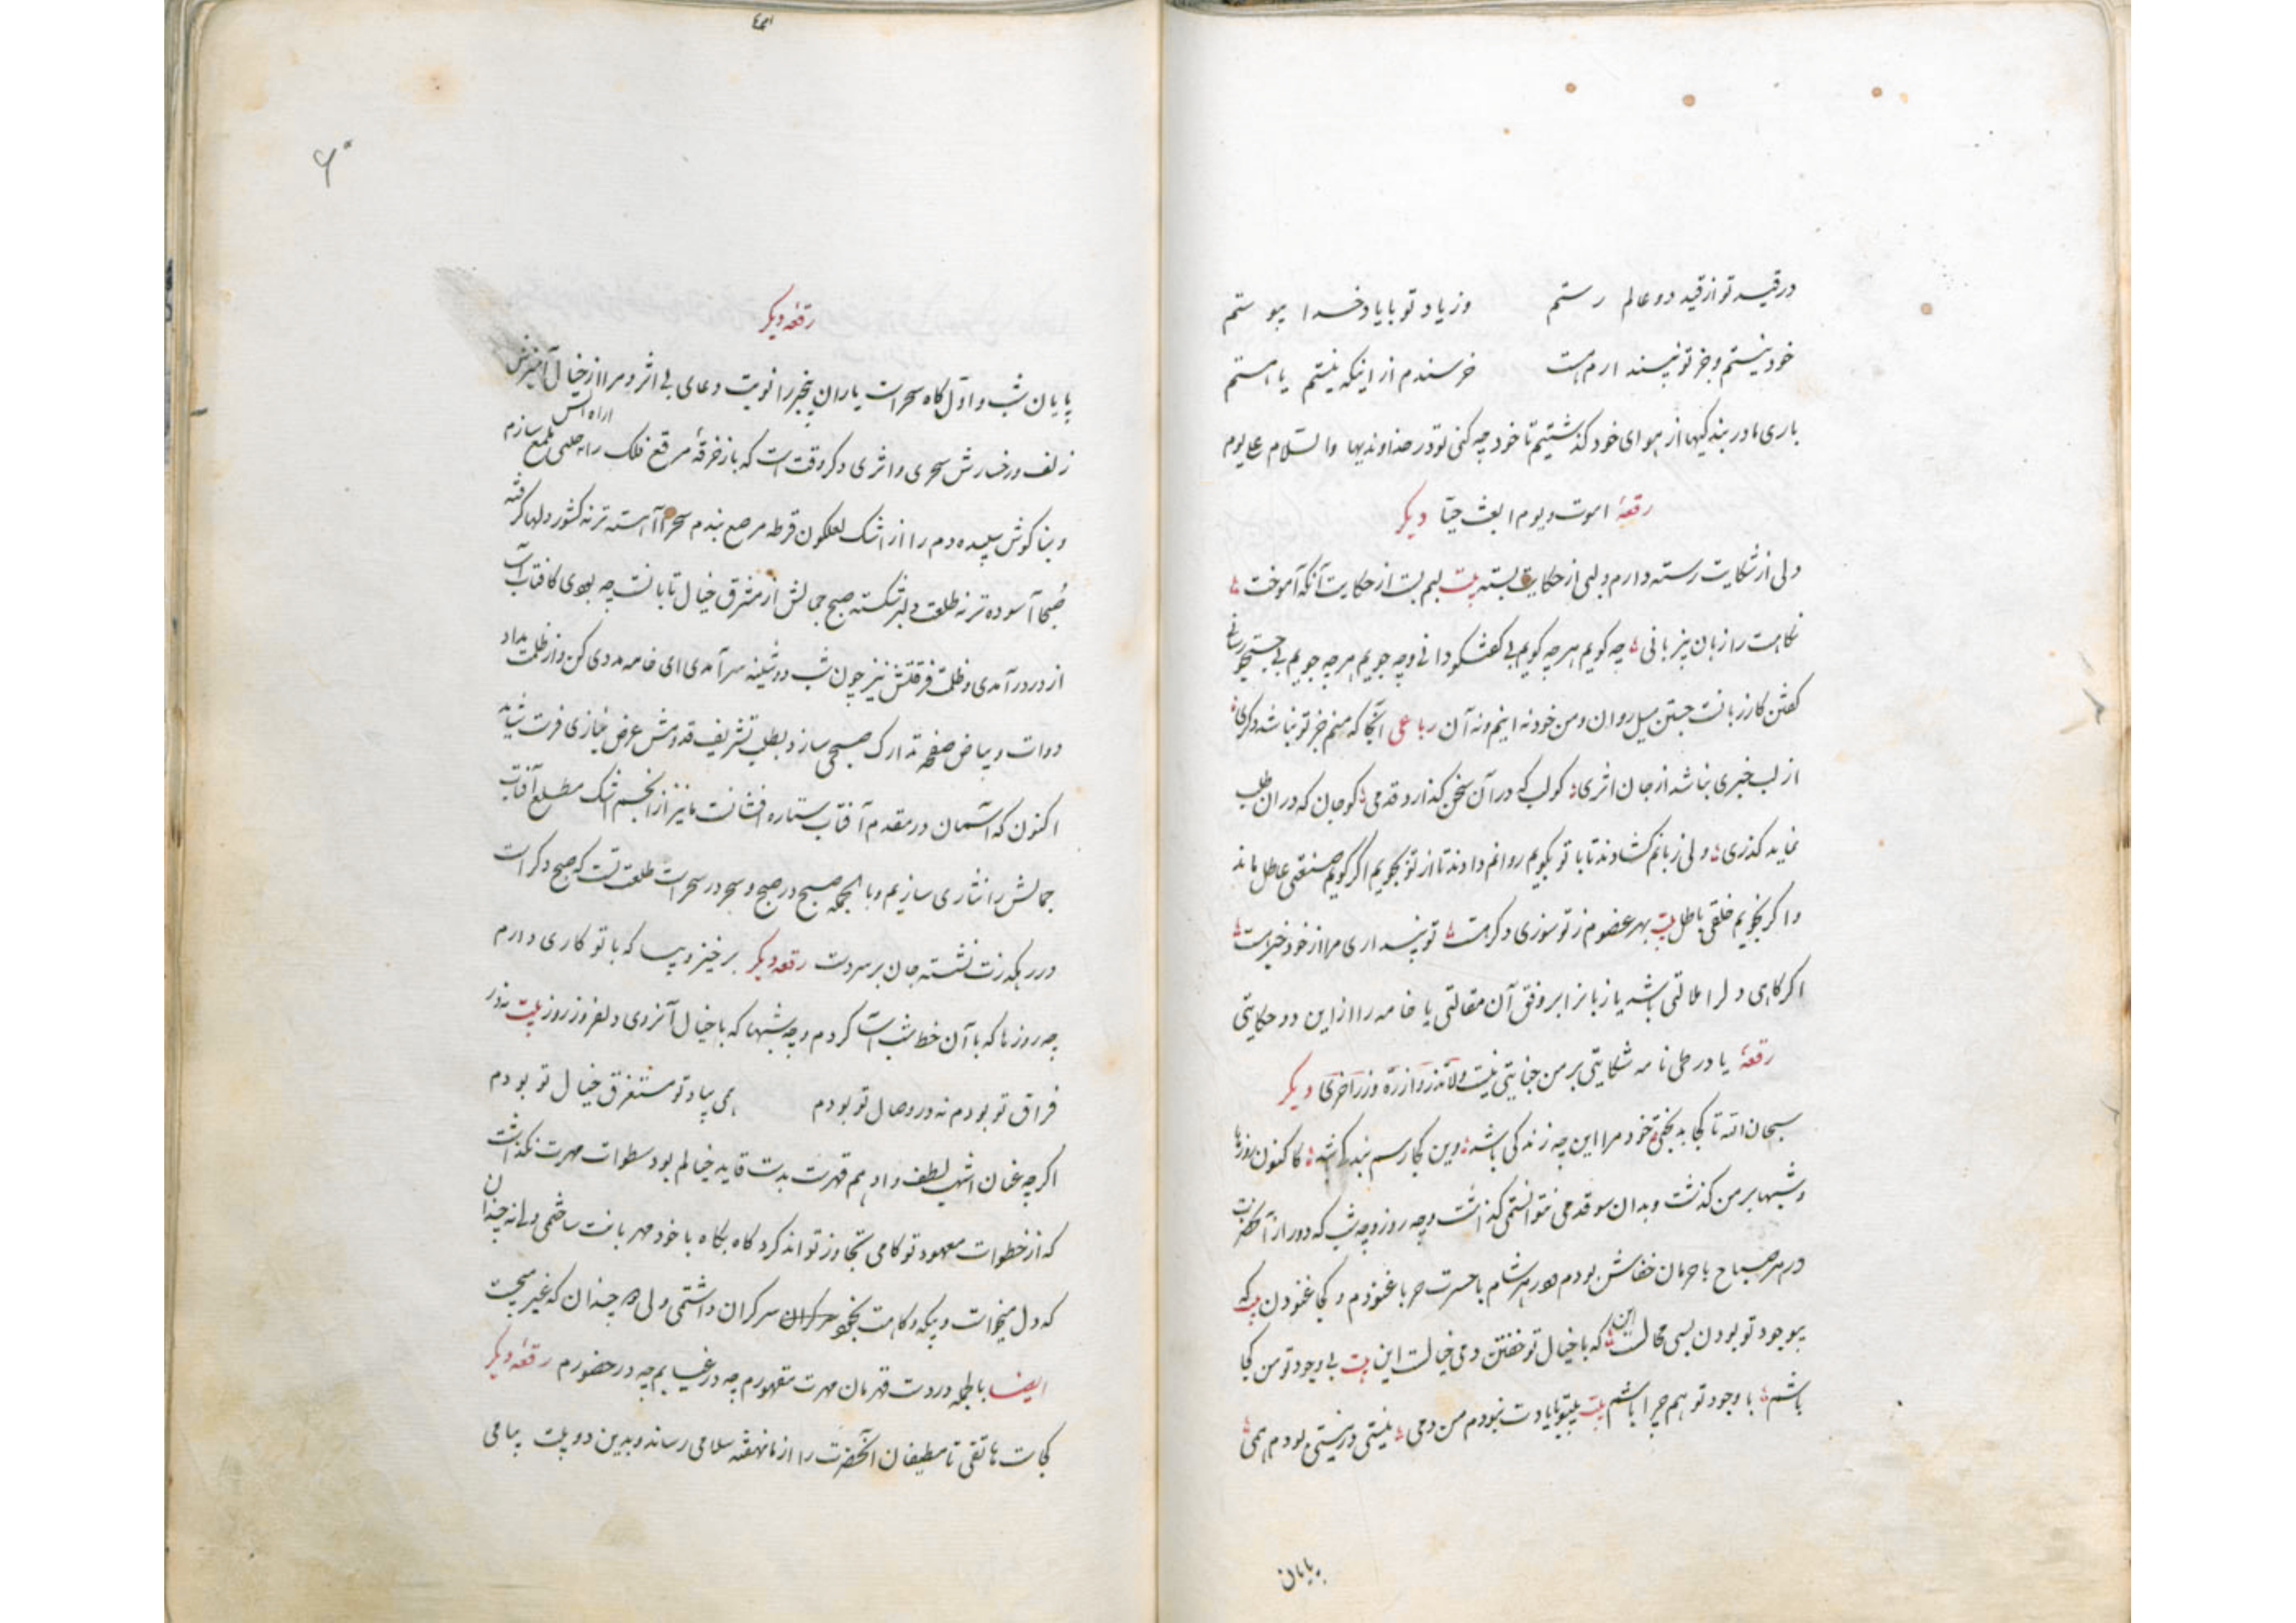 در قید تو از قید دو عالم رستم وز یاد تو با یاد خدا پیوستم
خود نیستم و جز تو نپسندارم هست خرسندم از اینکه نیستم یا هستم
باری ما در بندگیها از هوای خود گذشتیم تا خود چه کنی تو در خداوندیها والسلام علی یوم
رقعهٔ اموت و یوم ابعث حیّا دیگر
دلی از شکایت رسته دارم و لبی از حکایت بسته بیت لبم بست از حکایت آنکه آموخت
نگاهت را زبان بیزبانی چه گویم هر چه گویم بی گفتگو دانی و چه جویم هر چه جویم بی جستجو رسانی
گفتن کار زبانست جستن میل روان و من خود نه اینم و نه آن رباعی آنجا که منم جز تو نباشد دگری
از لب خبری نباشد از جان اثری کو لب که در آن سخن گذارد قدمی کو جان که در آن طلب
نماید گذری ولی زبانم گشادند تا با تو بگویم روانم دادند تا از تو بجویم اگر نگویم صنعتی عاطل ماند
و اگر نجویم خلقی باطل بیت بهر عضوم ز تو سوزی دگر هست تو پنداری مرا از خود خبر است
اگر گاهی دل را ملالتی باشد یا زبانرا بر وفق آن مقالتی یا خامه را از این دو حکایتی
رقعهٔ یا در طی نامه شکایتی بر من جنایتی نیست ولا تزر وازرة وزر اخری دیگر
سبحان الله تا کجا بدبختی خود مرا این چه زندگی باشد وین کجا رسم بندگی باشد تاکنون روزها
و شبها بر من گذشت و بدان سو قدمی نتوانستمی گذاشت و چه روز و چه شب که دور از آنحضرت
در هر صباح با حرمان خفاش بودم و در هر شام با حسرت حربا غنودم و کجا غنودن بیت که
بیوجود تو بودن بسی محالست این که با خیال تو خفتن دمی خیالست این بیت بی وجود تو من کجا
باشم با وجود تو هم چرا باشم بیت بیتو با یادت نبودم من دمی نیستی در نیستی بودم همی
پایان
۶۰
رقعه دیگر
پایان شب و اول گاه سحر است یاران بیخبر را نوبت دعای بی اثر و مرا از خیال آمیزش
زلف و رخسارش سحری و اثری دگر وقت است که باز خرقهٔ مرقع فلک را ملمع سازم
و بناگوش سپیده دم را از اشک لعلگون قرطه مرصع بندم سحرا آهسته تر نه کشور دلها گرفته
صبحا آسوده تر نه طلعت دلبر شکسته صبح جمالش از مشرق خیال تابانست چه بودی کافتاب آسا
از در درآمدی و ظلمت فرقتش نیز چون شب دوشینه سرآمدی ای خامه مددی کن و از ظلمت مداد
دوات و بیاض صفحه تدارک صبحی ساز و بطلب تشریف قدومش عرض نیازی فرست شاید
اکنون که آسمان در مقدم آفتاب ستاره افشانست ما نیز از انجم اشک مطلع آفتاب
جمالش را نثاری سازیم و بالجمله صبح در صبح و سحر در سحر است طلعت تست که صبح دگر است
در رهگذرت نشسته جان بر سر دست رقعه دیگر برخیز و بیا که با تو کاری دارم
چه روزها که با آن خط شب آسا کردم و چه شبها که با خیال آنروی دلفروز روز بیت نه در
فراق تو بودم نه در وصال تو بودم همی بیاد تو مستغرق خیال تو بودم
اگر چه عنان اشهب لطف و ادهم قهرت بدست قاید خیالم بود سطوات مهرت نگذاشت
که از خطوات معهود تو گامی تجاوز تواند کرد گاه بگاه با خود مهربانت ساختمی ولی نه چندان
که دل میخواست و بیگه و گاهت سرگران داشتمی ولی نه چندان که غیر میجست
ایضا بالجمله در دست قهرمان مهرت مقهورم چه در غیابم چه در حضورم رقعه دیگر
کجاست هاتفی تا مطیفان آنحضرت را از ما نهفته سلامی رساند و بدین دو بیت پیامی